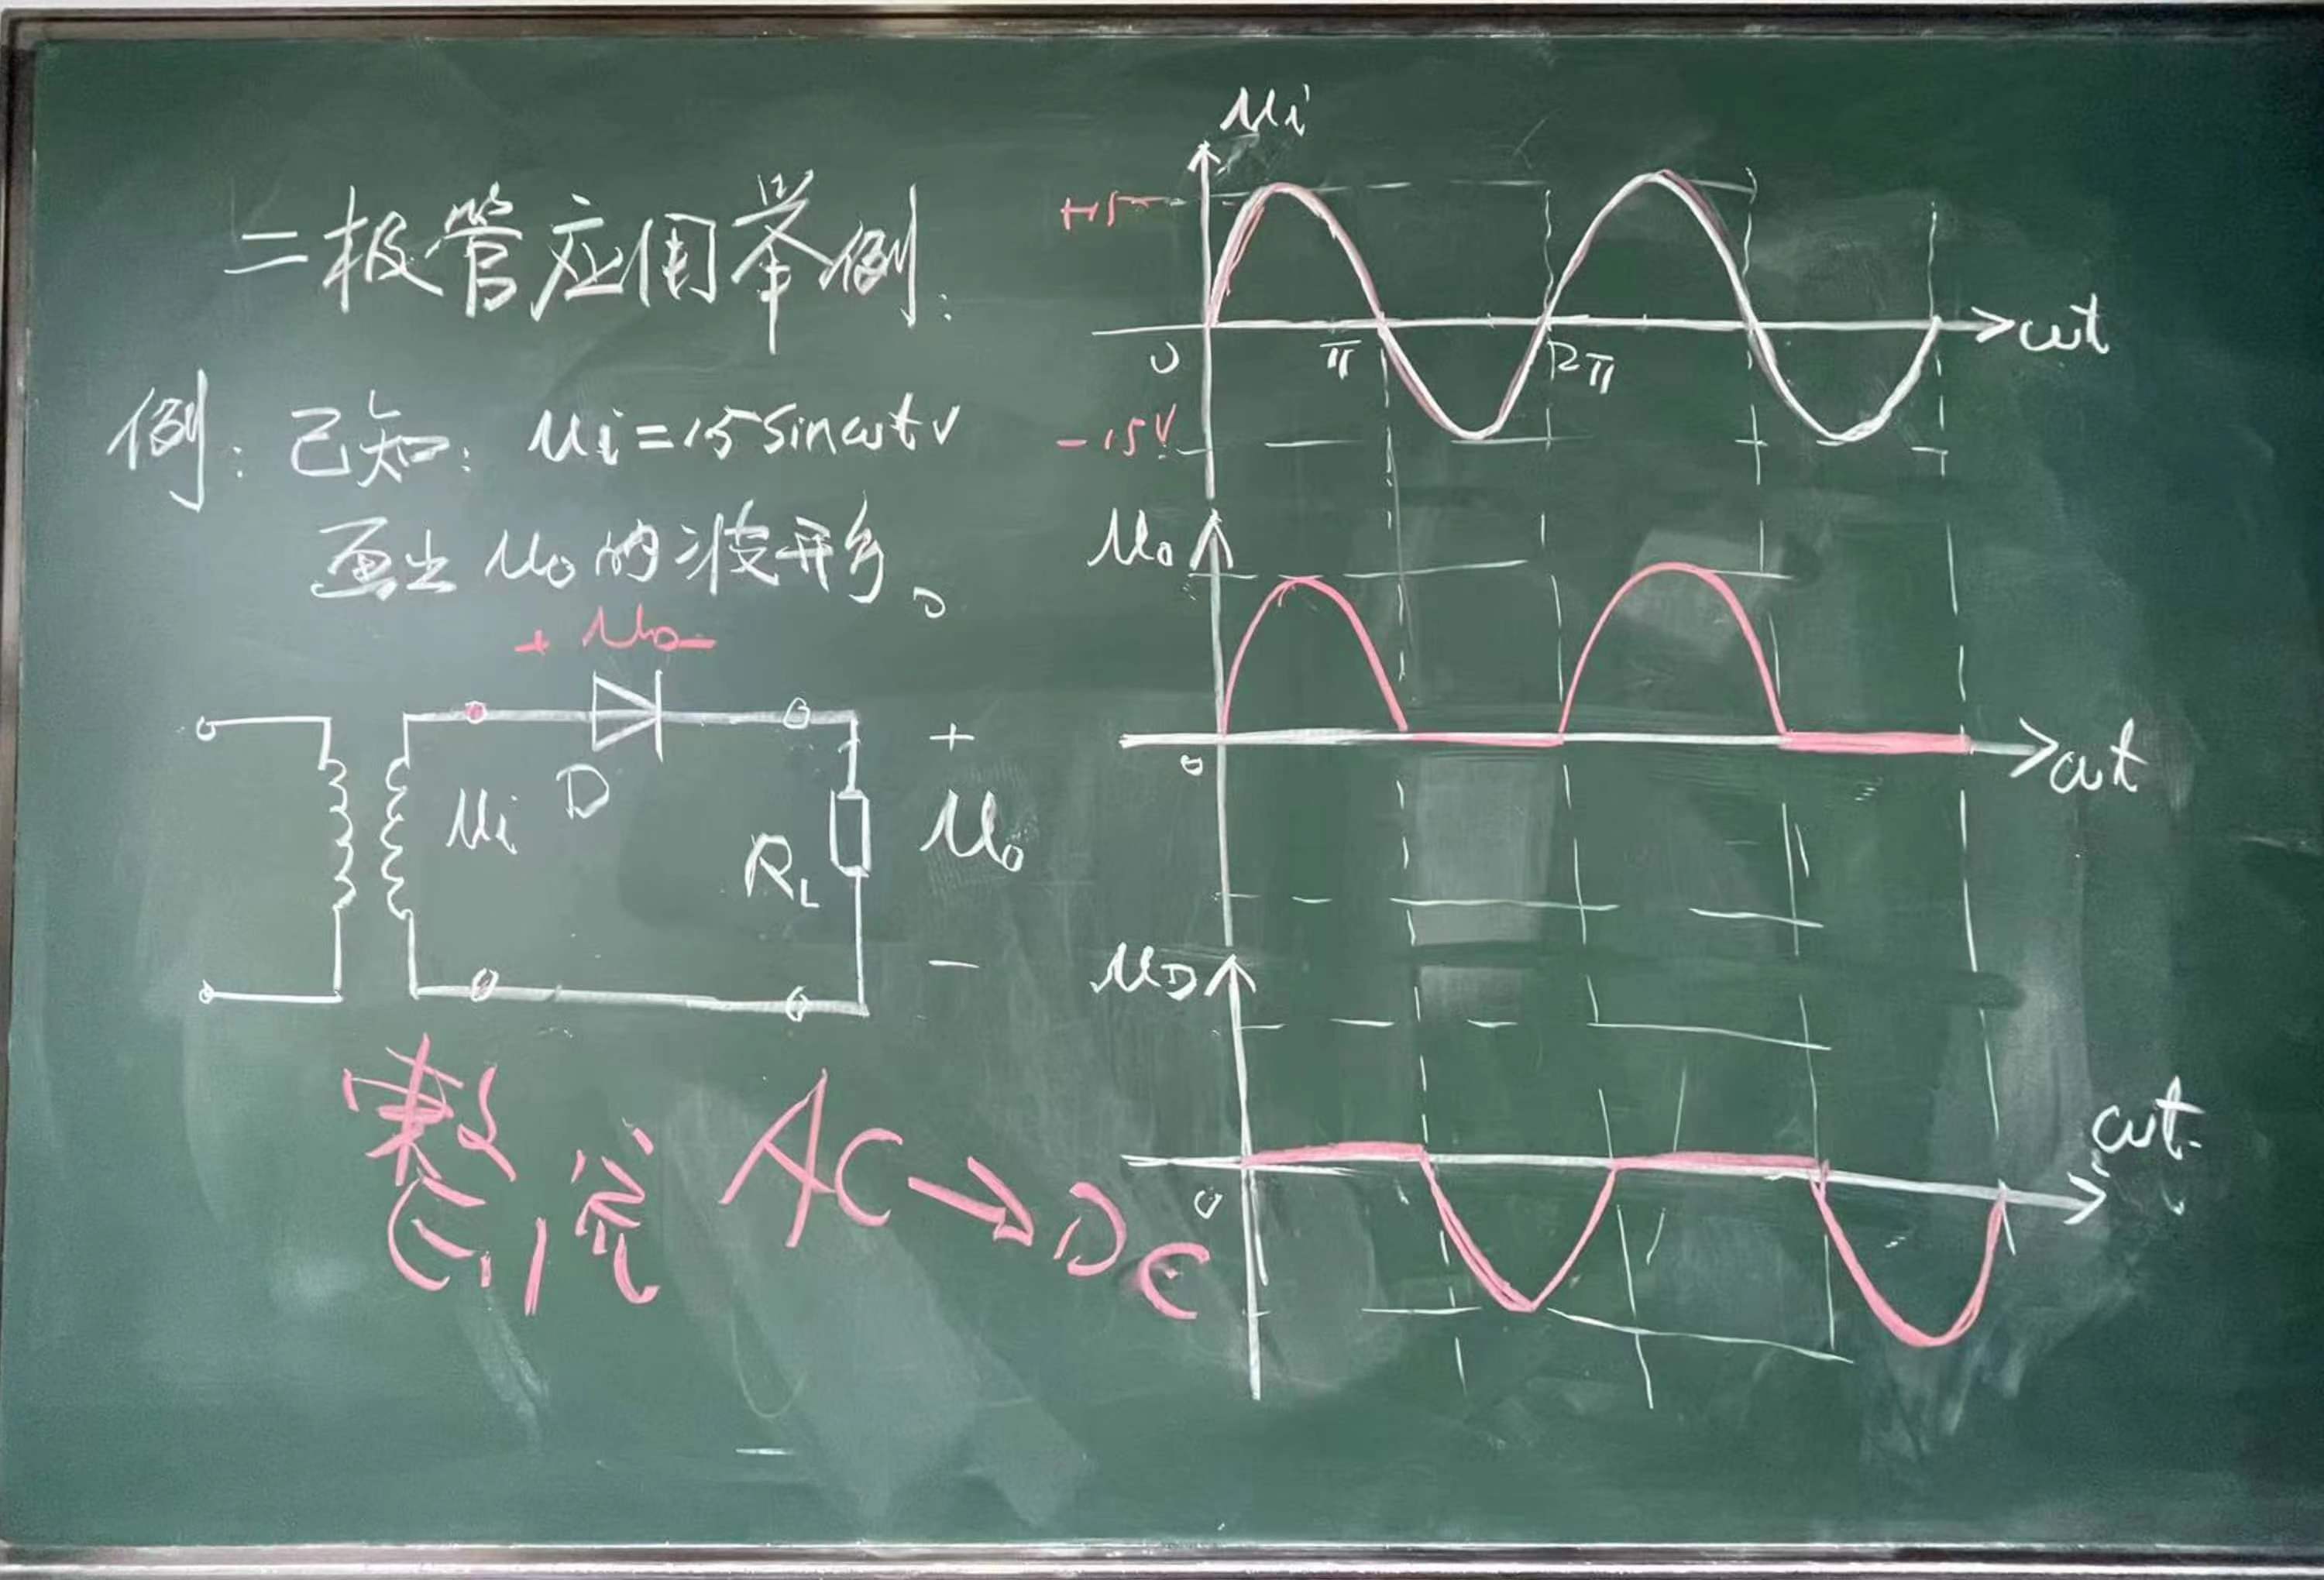 二极管应用举例:
例: 已知: ui=15sinωt v
画出 uo 的波形。
+ uD -
D
ui
RL
+
uo
-
整流 AC→DC
ui
+15
-15V
0
π
2π
ωt
uo
0
ωt
uD
0
ωt